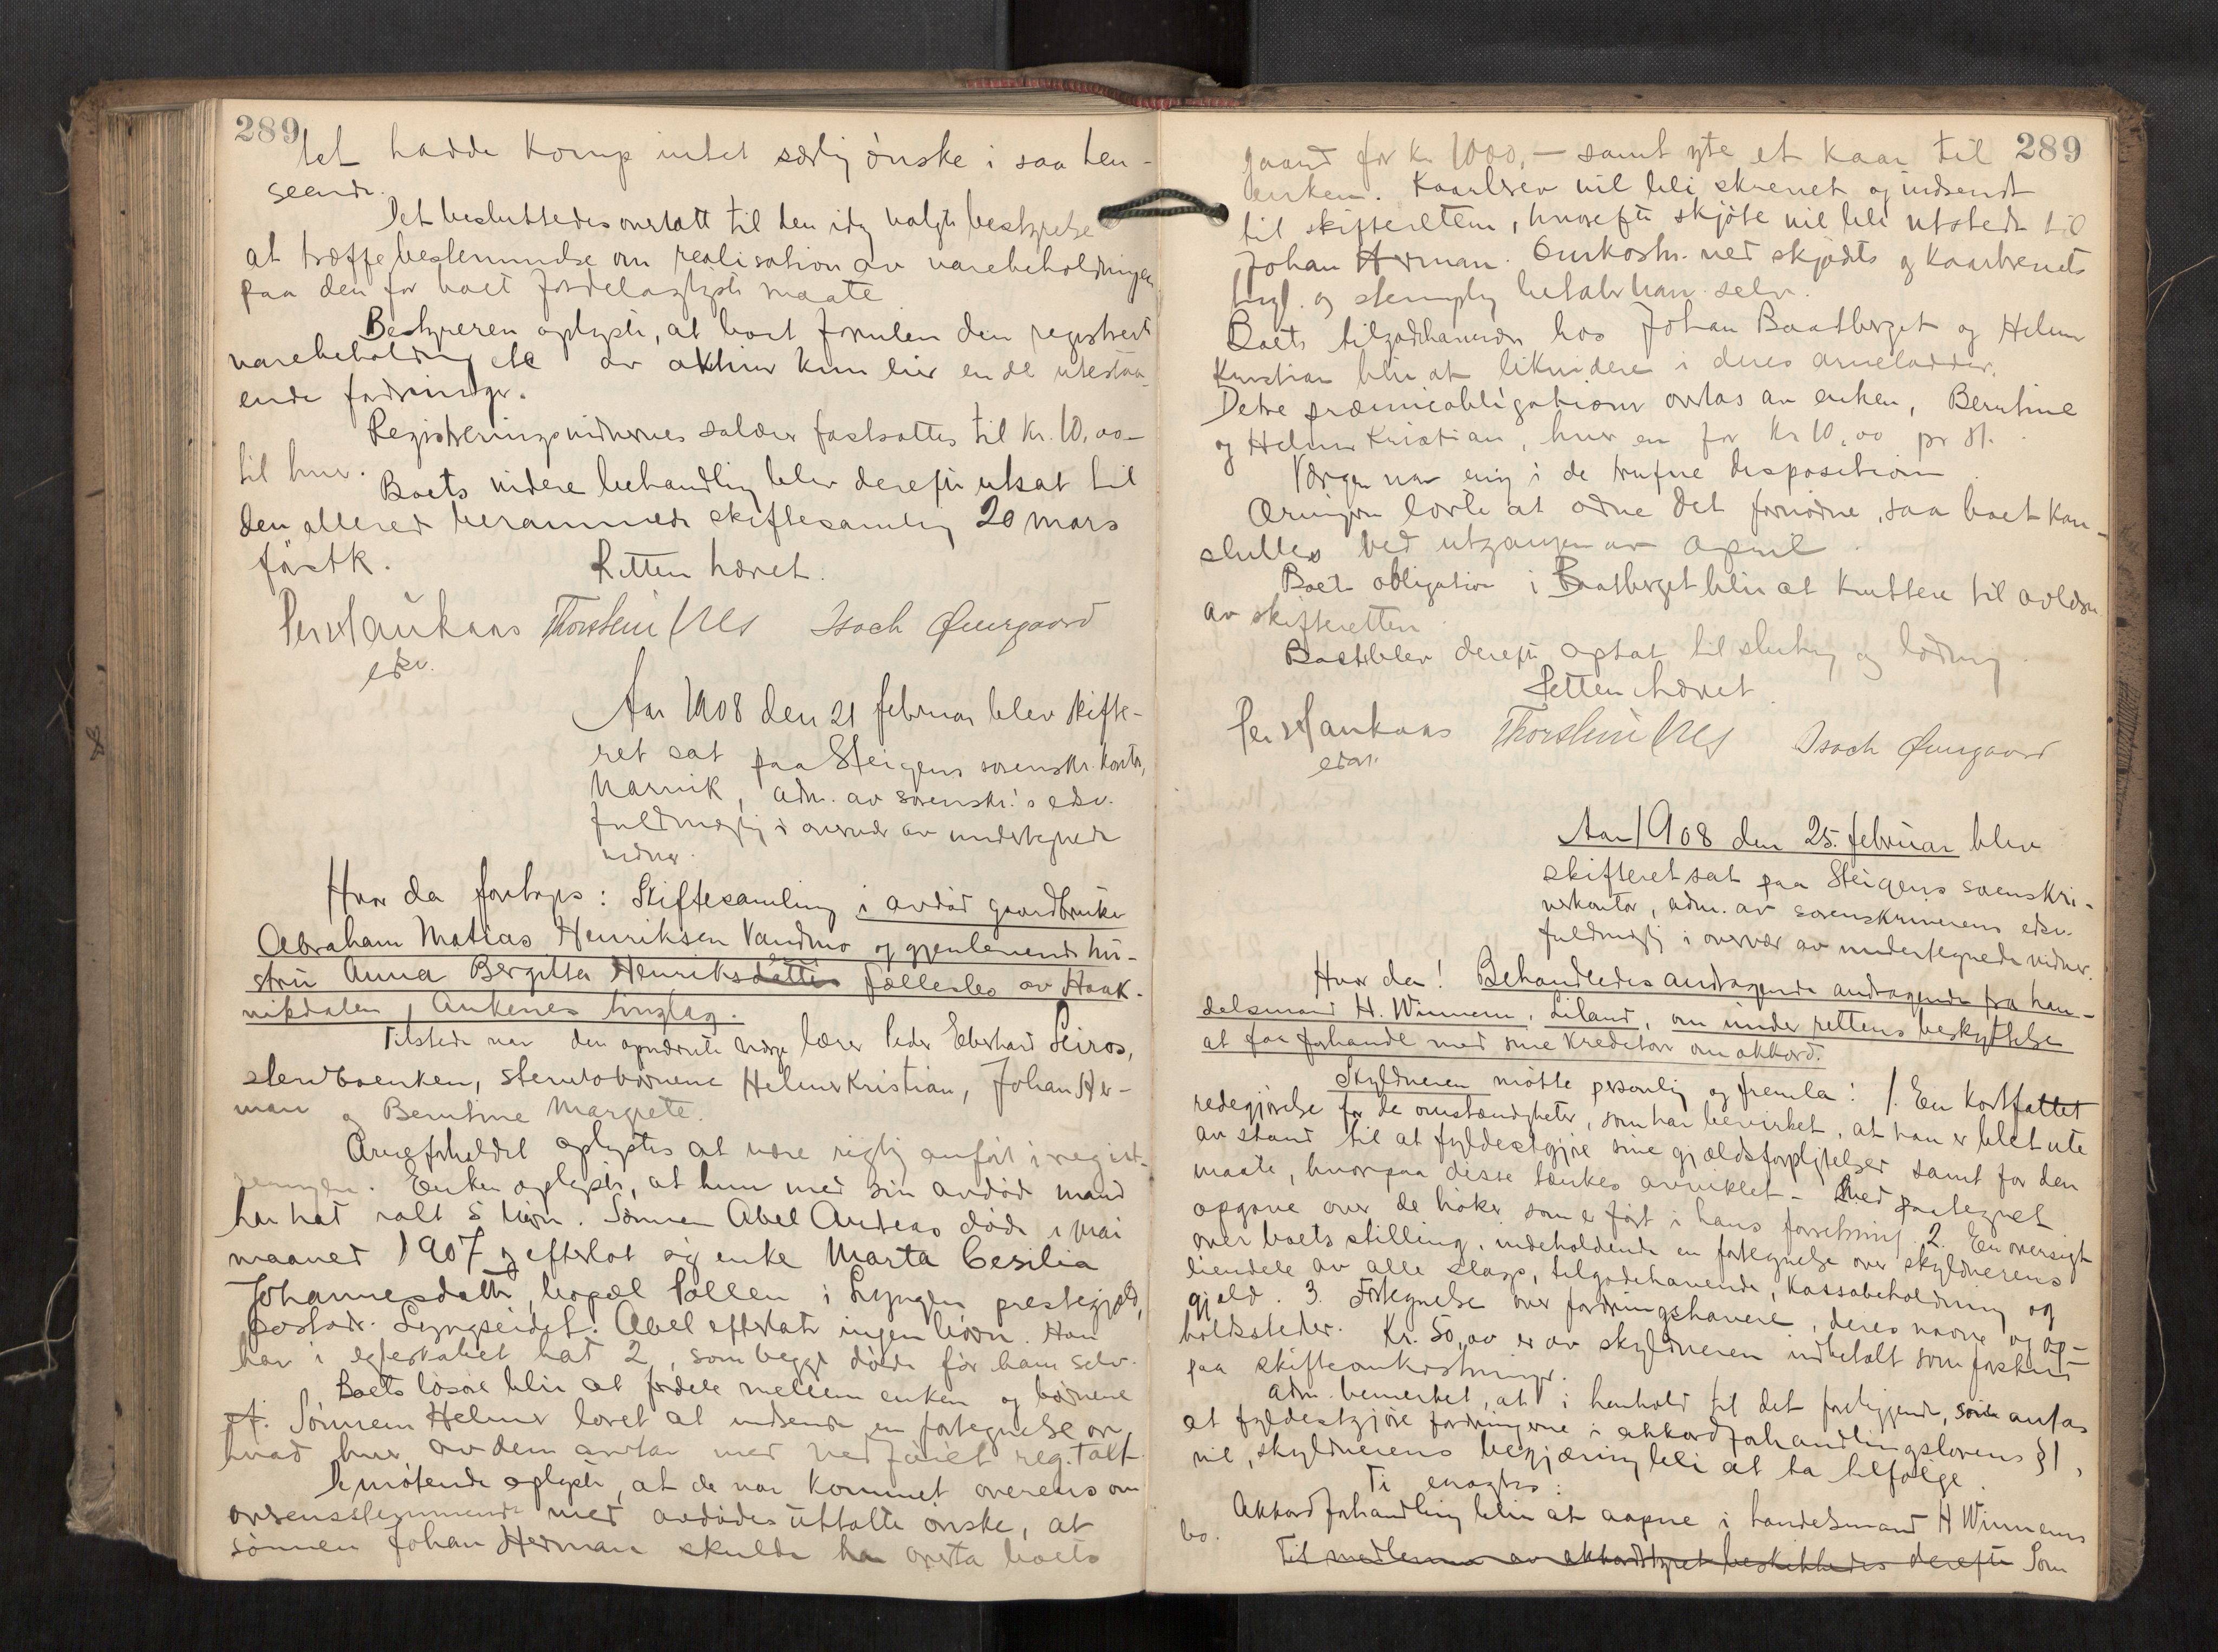 289
tet hadde Korup intet særlig ønske i saa hen-
seende.
Det besluttedes overlatt til den idag valgte bestyrelse
at træffe bestemmelse om realisation av varebeholdningen
paa den for boet fordelagtigste maate
Bestyreren oplyste, at boet foruten den registrerte
varebeholdning etc av aktiver kun eier en del utestaa-
ende fordringer.
Registreringsvidnernes salær fastsattes til Kr. 10,00
til hver.
Boets videre behandling blev derefter utsat til
den allerede berammede skiftesamling 20 mars
førstk.
Retten hævet.
Per Haukaas Thorstein Isach Ørnegaard
edsv.
Aar 1908 den 21 februar blev skifte-
ret sat paa Steigens sorenskr. kontor,
Narvik, adm. av sorenskr.'s edsv.
fuldmægtig i overvær av undertegnede
vidner.
Hvor da foretoges: Skiftesamling i avdød gaardbruker
Abraham Matias Henriksen Vandmo og gjenlevende hu-
stru Anna Bergitta Henriksdatter fællesbo av Haak-
vikdalen, Ankenes tinglag.
Tilstede var den opnævnte værge lærer Peder Eberhard Leiros,
stervboenken, stervbobørnene Helmer Kristian, Johan Her-
man og Berntine Margrete.
Arveforholdet oplystes at være rigtig anført i regist-
reringen. Enken oplyste, at hun med sin avdøde mand
har hat ialt 5 børn. Sønnen Abel Andreas døde i mai
maaned 1907 og efterlot sig enke Marta Cesilia
Johannesdatter, bopæl Pollen i Lyngen prestegjeld,
postadr. Lyngseidet. Abel efterlate ingen børn. Han
har i egteskabet hat 2, som begge døde før ham selv.
Boets løsøre blir at fordele mellem enken og børnene
Sønnen Helmer lovet at indsende en fortegnelse over
hvad hver av dem avtar med vedføiet reg. takt
De møtende oplyste, at de var kommet overens om
overensstemmende med avdødes uttalte ønske, at
sønnen Johan Herman skulde ha overta boets
289
gaard for kr 1000,- samt yte et kaar til
enken. Kaarbrev vil bli skrevet og indsendt
til skifteretten, hvorefter skjøte vil bli utstedt til
Johan Herman. Omkostn. ved skjødets og kaarbrevets
tingl. og stempling betaler han selv.
Boets tilgodehavende hos Johan Baatberget og Helmer
Kristian blir at likvidere i deres arvelodder.
De præmieobligationer overtas av enken, Berntine
og Helmer Kristian, hver en for Kr 10,00 pr st.
Værgen var enig i de trufne disposition
Arvingerne lovte at ordne det fornødne, saa boet kan
sluttes ved utgangen av April.
Boets obligation i Baatberget blir at kvittere til avlæsn
av skifteretten.
Boet blev derefter optat til slutning og lodning.
Retten hævet
Per Haukaas Thorstein Isach Ørnegaard
edsv.
Aar 1908 den 25. februar blev
skifteret sat paa Steigens sorenskri-
verkontor, adm. av sorenskriverens edsv.
fuldmægtig i overvær av undertegnede vidner.
Hvor da! Behandledes andragende andragende fra han-
delsmand H. Winnem, Liland, om under rettens beskyttelse
at faa forhandle med sine kreditorer om akkord.
Skyldneren møtte personlig og fremla: 1. En kortfattet
redegjørelse for de omstændigheter, som har bevirket, at han er blet ute
av stand til at fyldestgjøre sine gjældsforpligtelser samt for den
maate, hvorpaa disse tænkes avviklet - Med paategnet
opgave over de bøker som er ført i hans forretning. 2. En oversigt
over boets stilling, indeholdende en fortegnelse over skyldnerens
eiendele av alle slags, tilgodehavende, kassabeholdning og
gjæld. 3. Fortegnelse over fordringshavere, deres navne og op-
holdssteder. Kr. 50,00 er av skyldneren indbetalt som forskud
paa skifteomkostninger.
Adm. bemerket, at i henhold til det foreliggende, som antas
at fyldestgjøre fordringerne i akkordforhandlingslovens §1,
vil, skyldnerens begjæring bli at ta tilfølge.
Ti eragtes:
Akkordforhandling blir at aapne i handelsmand H Winnems
bo.
Til medlemmer av akkordstyret beskikkedes derefter Som